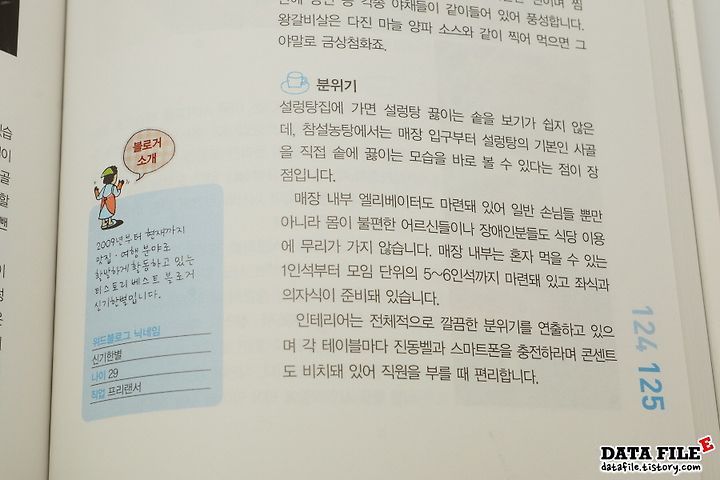 각종 야채들이 같이들어 있어 풍성합니다.
왕갈비살은 다진 마늘 양파 소스와 같이 찍어 먹으면 그
야말로 금상첨화죠.
분위기
설렁탕집에 가면 설렁탕 끓이는 솥을 보기가 쉽지 않은
데, 참설농탕에서는 매장 입구부터 설렁탕의 기본인 사골
을 직접 솥에 끓이는 모습을 바로 볼 수 있다는 점이 장
점입니다.
매장 내부 엘리베이터도 마련돼 있어 일반 손님들 뿐만
아니라 몸이 불편한 어르신들이나 장애인분들도 식당 이용
에 무리가 가지 않습니다. 매장 내부는 혼자 먹을 수 있는
1인석부터 모임 단위의 5~6인석까지 마련돼 있고 좌식과
의자식이 준비돼 있습니다.
인테리어는 전체적으로 깔끔한 분위기를 연출하고 있으
며 각 테이블마다 진동벨과 스마트폰을 충전하라며 콘센트
도 비치돼 있어 직원을 부를 때 편리합니다.
블로거
소개
2009년부터 현재까지
맛집·여행 분야로
활발하게 활동하고 있는
티스토리 베스트 블로거
신기한별입니다.
위드블로그 닉네임
신기한별
나이 29
직업 프리랜서
124 125
DATA FILE E
datafile.tistory.com